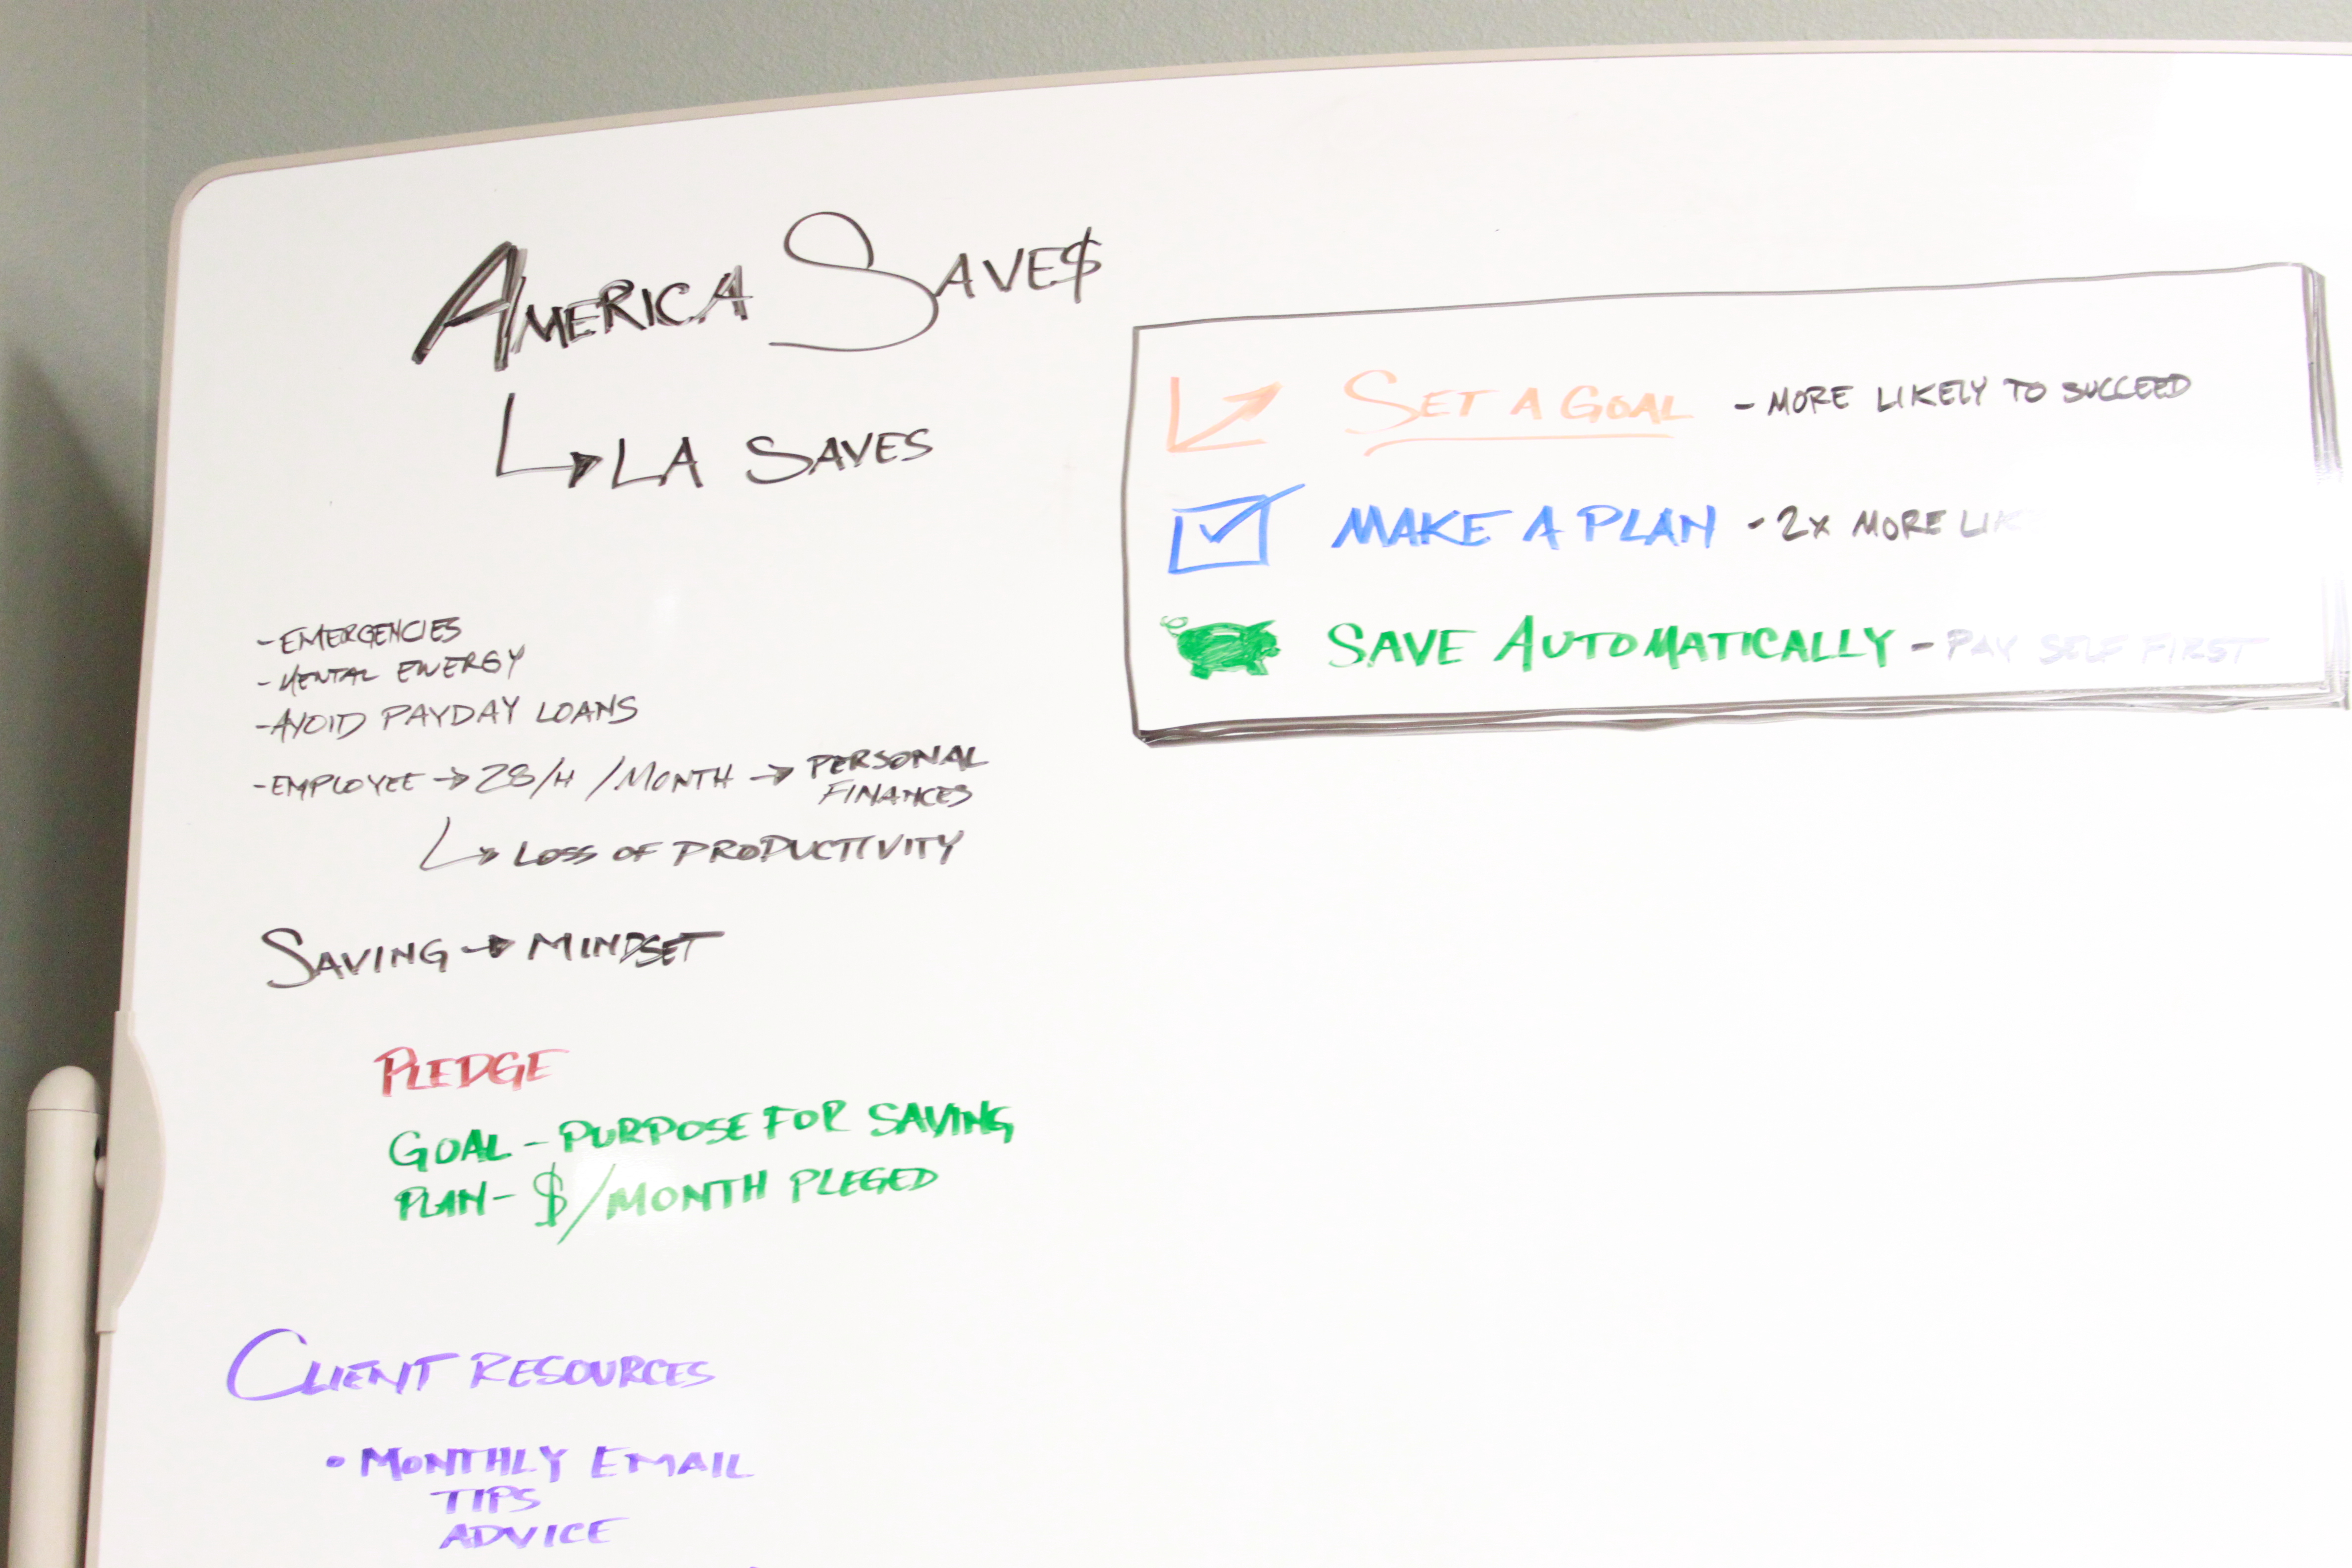 AMERICA SAVE$
LA SAVES
- EMERGENCIES
- MENTAL ENERGY
- AVOID PAYDAY LOANS
- EMPLOYEE → 28/H /MONTH → PERSONAL
FINANCES
LOSS OF PRODUCTIVITY
SAVING → MINDSET
PLEDGE
GOAL - PURPOSE FOR SAVING
PLAN - $/MONTH PLEGED
CLIENT RESOURCES
• MONTHLY EMAIL
TIPS
ADVICE
SET A GOAL - MORE LIKELY TO SUCCEED
MAKE A PLAN - 2X MORE
SAVE AUTOMATICALLY - PAY SELF FIRST